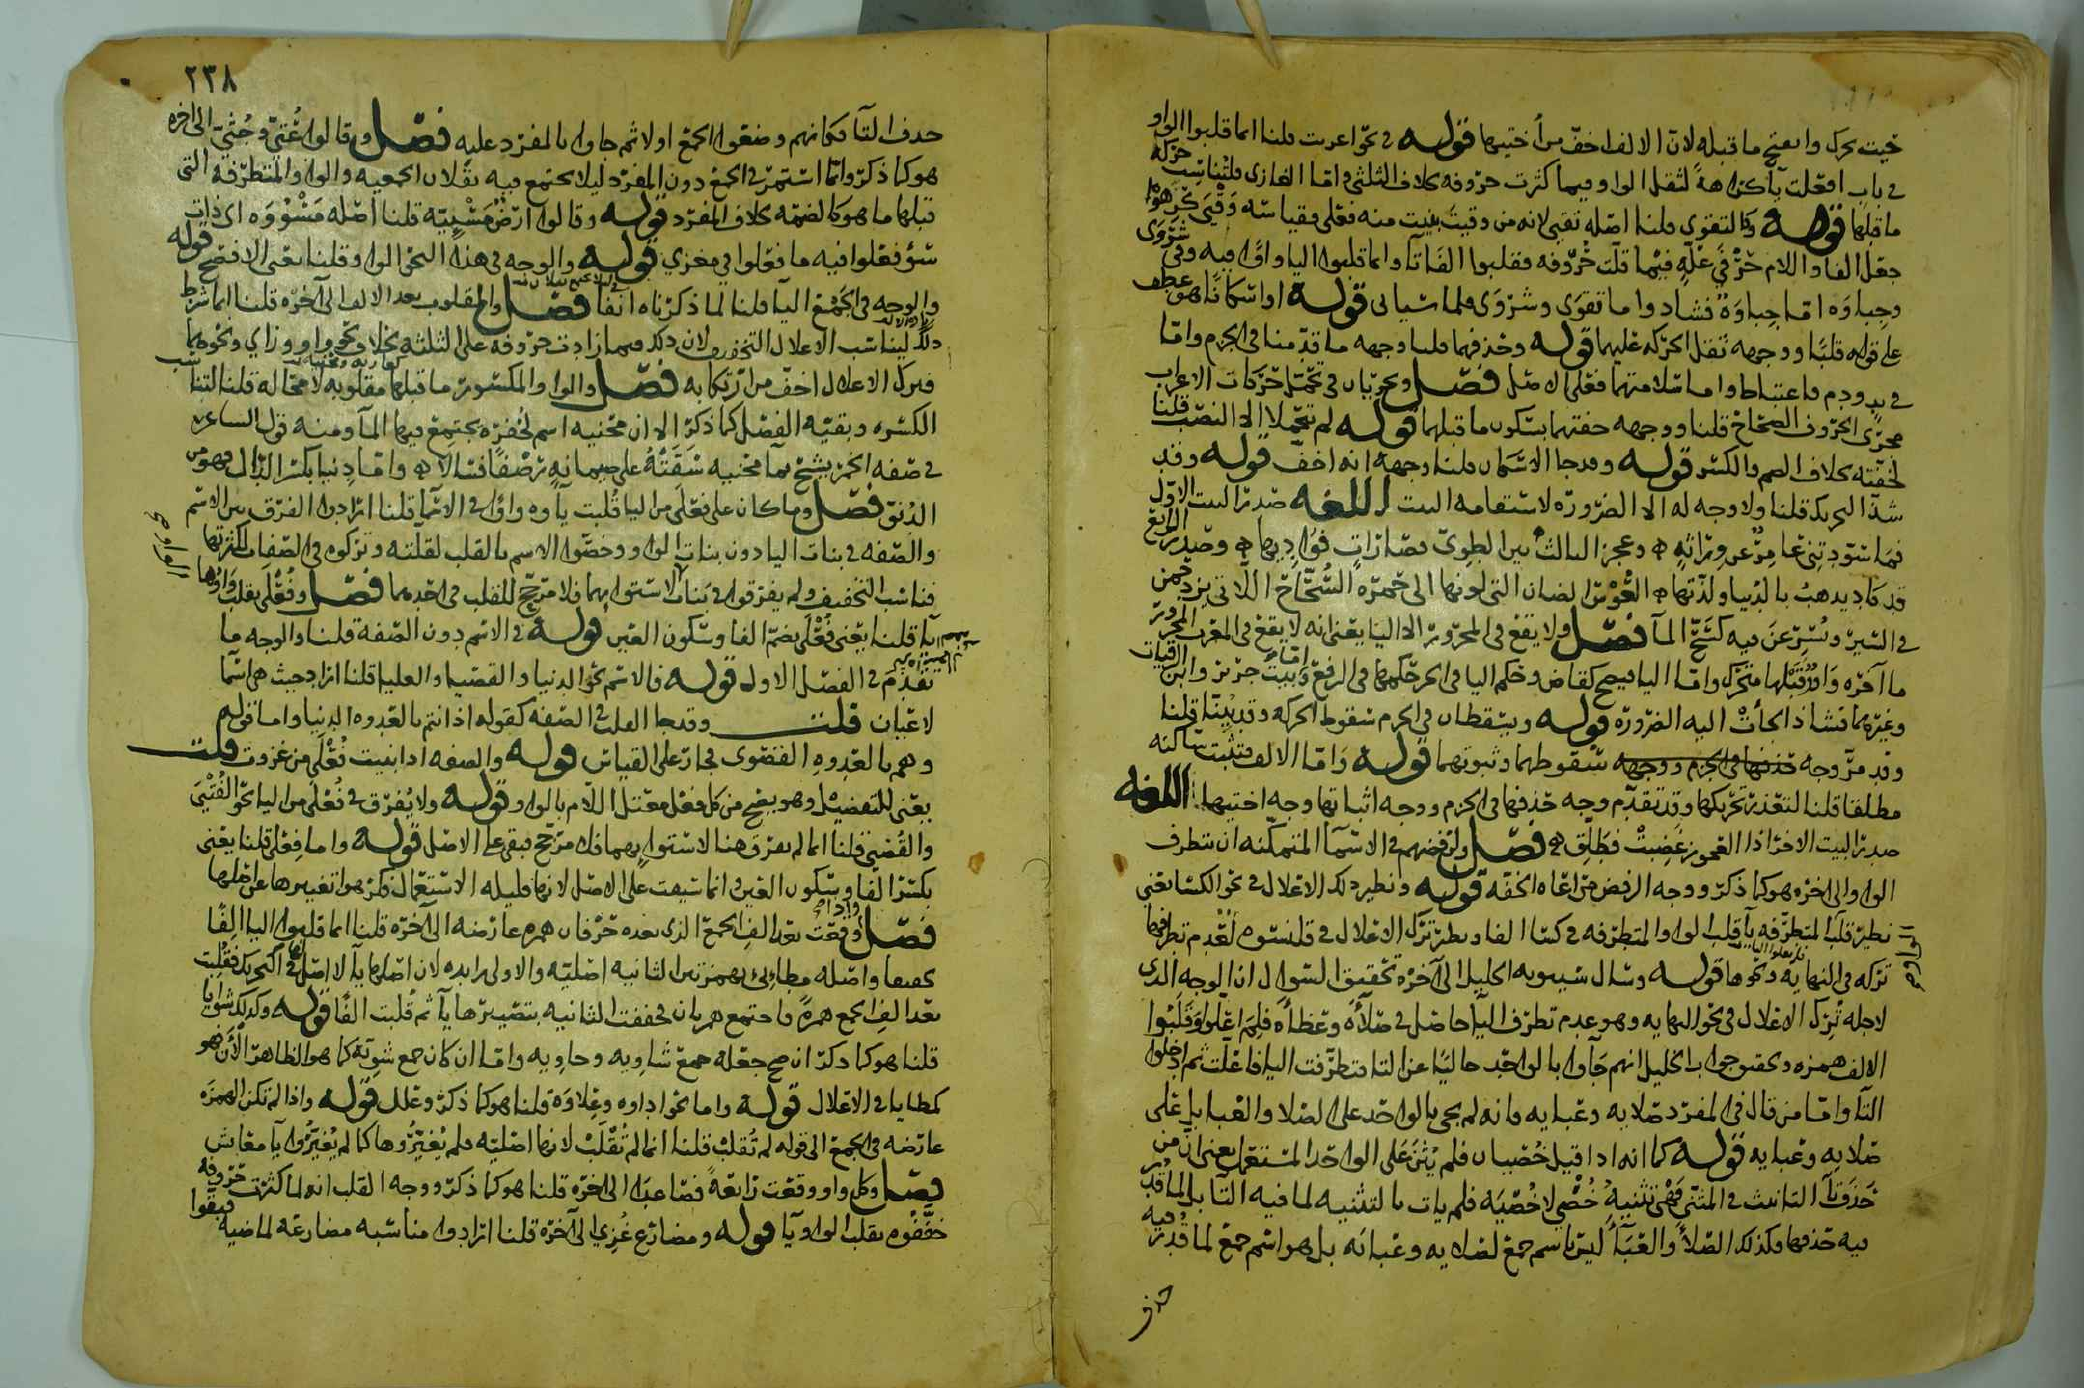 حيث تحرك وانفتح ما قبله لان الالف اخف من اختيها قوله في نحو اعربت قلنا انما قلبوا الواو
في باب افعلت ياً كراهةً لثقل الواو فيما كثرت حروفه بخلاف الثلثي واما الغازي فلتناسب حركة
ما قبلها قوله وكالتقوى قلنا اصله تقيى لانه من وقيت بنيت منه فعلى فقياسه وقيى كرهوا
جعل الفا واللام حرفي علة فيما قلت حروفه فقلبوا الفا تاً وانما قلبوا اليا واوًا فيه وفي شروى
وجباوة اما جباوة فشاذ واما تقوى وشروى فلما سياتى قوله او اسكانا هو عطف
على قوله قلبًا ووجهه ثقل الحركة عليهما قوله وحذفهما قلنا وجهه ما قدمنا في الجزم واما
في يد ودم فاعتباط واما سلامتهما فعلى الاصل فصل ويجريان في تحمل حركات الاعراب
مجرى الحروف الصحاح قلنا ووجهه خفتهما بسكون ما قبلهما قوله لم تتحملا الا النصب قلنا
لخفته بخلاف الضم والكسر قوله وقد جا الاسكان قلنا وجهه انه اخف قوله وقد
شذ التحريك قلنا ولا وجه له الا الضرورة لاستقامة البيت اللغه صدر البيت الاول
فما سودتني عامر عن وراثه وعجز الثالث بين الطوي فصارات فواديها وصدر الرابع
قد كاد يذهب بالدنيا ولذتها العُوْسُ الضان التي لونها الى حمرة السُّحَّاح اللاتي يزدحمن
في السير ويُسْرِعْنَ فيه كسَحِّ المآ فصل ولا يقع في المجرور الا اليا يعني انه لا يقع في المعرب المجرور
ما آخره واو قبلها متحرك واما اليا فيصح كقاض وحكم اليا في الجر حكمها في الرفع وابيات جرير وابن الرقيات
وغيرهما فشاذ الجأت اليه الضرورة قوله ويسقطان في الجزم سقوط الحركة وقد بيّنّا قلنا
وقد مر وجه حذفها في الجزم ووجهه سقوطهما وثبوتهما قوله واما الالف فتثبت ساكنه
مطلقا قلنا لتعذر تحريكها وقد تقدم وجه حذفها في الجزم ووجه اثباتها وجه اختيها اللغه
صدر البيت الاخر اذا العجوز غضبت فطلّق فصل ولرفضهم في الاسمآ المتمكنه ان تتطرف
الواو الى اخره هو كما ذكر ووجه الرفض مراعاة الخفه قوله ونظير ذلك الاعلال في نحو الكسا يعني
نظير قلب المتطرفه يآ قلب الواو المتطرفه في كسا الفا ونظير ترك الاعلال في قلنسوه لعدم تطرفها
تركه في النهايه ونحوها قوله وسال سيبويه الخليل الى آخره تحقيق السؤال ان الوجه الذي
لاجله تُرِك الاعلال في نحو النهايه وهو عدم تطرف اليآ حاصل في صَلاْءَة وعَظاءة فلِمَ اعلوا وقَلَبُوا
الالف همزه وتحقيق جواب الخليل انهم جآوا بالواحد حاليًا عن التا فتطرفت اليا فاعلت ثم ادخلوا
التآ واما من قال في المفرد صَلايه وعبايه فانه لم يجئ بالواحد على الصلا والعبا بل على
صلايه وعبايه قوله كما انه اذا قيل خُصْيان فلم يُثَنّ على الواحد المستعمل يعني ان من
حَذَفَ تآ التانيث في المثنى فهْي تثنيةُ خُصْي لا خُصْيَه فلم يات بالتثنيه لما فيه التآ بل لما قدر
فيه حذفها وكذلك الصَّلَأُ والعَبَأُ ليس باسم جمع لصلايه وعبائه بل هو اسم جمع لما قدر فيه
حذف
٢٣٨
حذف التآ فكانهم وضعوا الجمع اولا ثم جاوا بالمفرد عليه فصل وقالوا عُتيّ وجُثيّ الى اخره
هو كما ذكر وانما استمر في الجمع دون المفرد ليلا يجتمع فيه ثقلان الجمعيه والواو المتطرفه التي
قبلها ما هو كالضمه بخلاف المفرد قوله وقالوا ارض مَسْنِيّه قلنا اصله مَسْنُوْوَه اي ذات
سنو ففعلوا فيه ما فعلوا في مغزي قوله والوجه في هذا النحو الواو قلنا يعني الافصح قوله
والوجه في الجمع اليآ قلنا لما ذكرناه انفا فصل والمقلوب بعد الالف الى آخره قلنا انما شرط
ذلك ليناسب الاعلال التخفيف لان ذلك فيما زادت حروفه على الثلثه بخلاف نحو واو وزاي ونحوهما
فترك الاعلال اخف من ارتكابه فصل والواو المكسور ما قبلها مقلوبه لا محاله قلنا لتناسب
الكسره وبقيه الفصل كما ذكر الا ان محنيه اسم لحُفره يجتمع فيها المآ ومنه قول الساعر
في صفه الخمر يشج بمآ محنيه سَقَتْهُ على صمانه رصفًا فسالا واما دِنيا بكسر الدال فهو من
الدُنوّ فصل وما كان على فَعْلى من اليا قُلبت يآوه واوًا في الاسما قلنا ارادوا الفرق بين الاسم
والصفه في بنات اليا دون بنات الواو وخصّوا الاسم بالقلب لقلته وتركوه في الصفات لكثرتها
فناسب التخفيف ولم يفرقوا في بنات الواو لاستوايهما فلا مرجح للقلب في احدهما فصل وفُعْلى تقلب واوها
يآ قلنا يعني فُعْلى بضم الفا وسكون العين قوله في الاسم دون الصفة قلنا والوجه ما
تقدم في الفصل الاول قوله فالاسم نحو الدنيا والقصيا والعليا قلنا اراد حيث هي اسمآ
لاعيان قلت وقد جا القلب في الصفه كقوله اذ انتم بالعدوه الدنيا واما قولهم
وهم بالعدوه القصوى فجار على القياس قوله والصفه اذا بنيت فُعْلَى من غزوت قلت
يعني للتفضيل وهو يصح من كل فعل معتل اللام بالواو قوله ولا يُفرّق في فُعْلى من اليا نحو الفُتْيَى
والقُضيى قلنا انما لم يفرق هنا لاستوايهما فلا مرجح فبقي على الاصل قوله واما فِعْلى قلنا يعني
بكسر الفا وسكون العين وانما سيقت على الاصل لانها قليله الاستعمال فكرهوا تغييرها عن اصلها
فصل واذا وقعت بعد الف الجمع الذي بعده حرفان همزه عارضه الى آخره قلنا انما قلبوا اليا الفًا
تخفيفا واصله مطائِيُ بهمزتين الثانيه اصليه والاولى زايده لان اصلها يآ لا اصل لها في التحريك فقُلِبت
بعد الف الجمع همزةً فاجتمع همزتان فخففت الثانيه بتصييرها يآ ثم قُلبت الفًا قوله وكذلك شوايا
قلنا هو كما ذكر ان صح جعله جمع شاويه وحاويه واما ان كان جمع شويّه كما هو الظاهر الآن فهو
كمطايا في الاعلال قوله واما نحو اداوه وعِلاوَة قلنا هو كما ذكر وعلل قوله واذا لم تكن الهمزه
عارضه في الجمع الى قوله لم تُقلبْ قلنا انما لم تُقْلَبْ لانها اصليه فلم يُغيّرُوها كما لم يُغَيّرُوا يآ معايش
فصل وكل واو وقعت رابعةً فصاعدًا الى اخره قلنا هو كما ذكر ووجه القلب انه لما كثرت حروفه
خففوه بقلب الواو يآ قوله ومضارع غُزِيَ الى آخره قلنا ارادوا مناسبه مضارعه لماضيه فبقوا